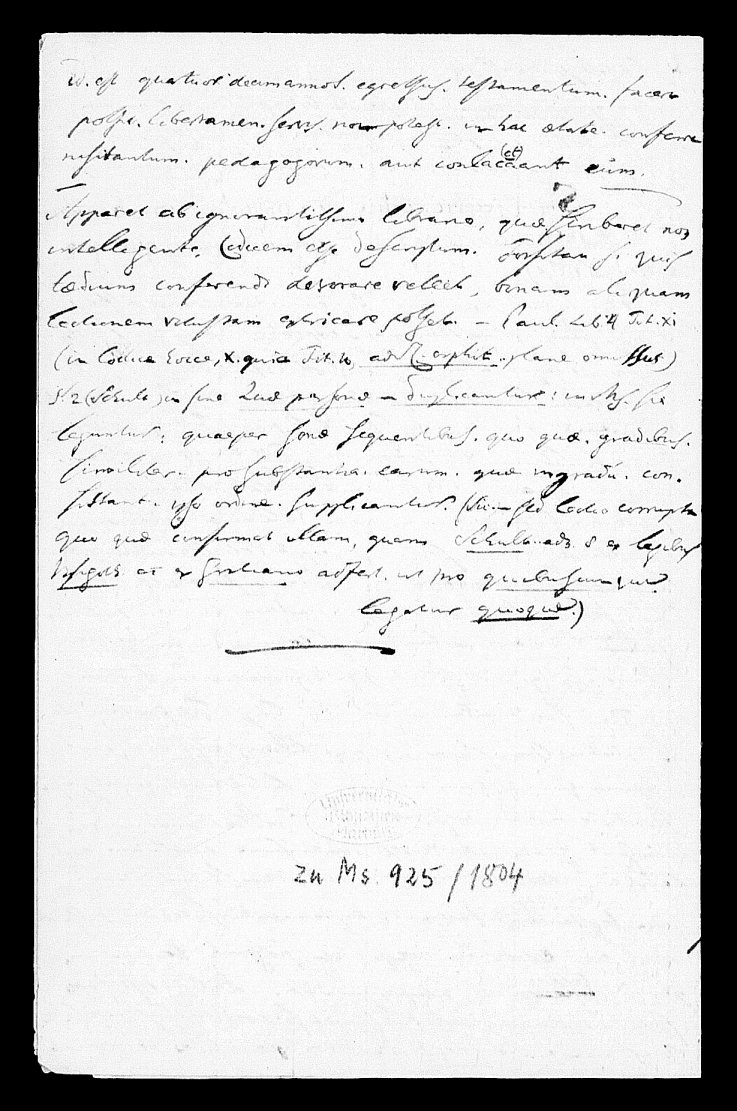 id. est quatuor decim annos. egressus. testamentum. facere
posse. libertamen. servis. non potest. in hac ætate. conferre
nisi tantum. pedagogorum. aut conlac(ct)aant eum.
Apparet ab ignorantissimo librario, quæ scriberet non
intellegente, Codicem esse descriptum. forsitan si quis
tædium conferendi devorare vellet, bonam aliquam
lectionem vetustam extricare posset. – Paul. Lib. 4 Tit. XI
(in Codice Tit. 10, ad Sc. orphit. plane omissus)
§ 2 (Schult.) in fine Quæ personæ – duplicantur: in Ms. sic
leguntur: quaeper sonæ sequentibus. quo quæ. gradibus.
similiter. pro substantia. earum. quæ ingradu. con.
sistant. ipso ordine. supplicantur. (Sic. – sed lectio corrupta
quo quæ confirmat illam, quam Schulting ad § 8 ex legibus
Wisigoth. et ex Graciano adfert, ut pro quibuscumque
legatur quoque.)
zu Ms. 925/1804